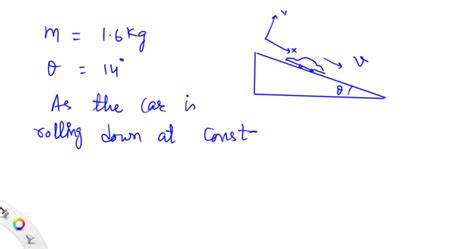 m = 1.6kg
θ = 14°
As the car is
rolling down at const
y
x
v
θ